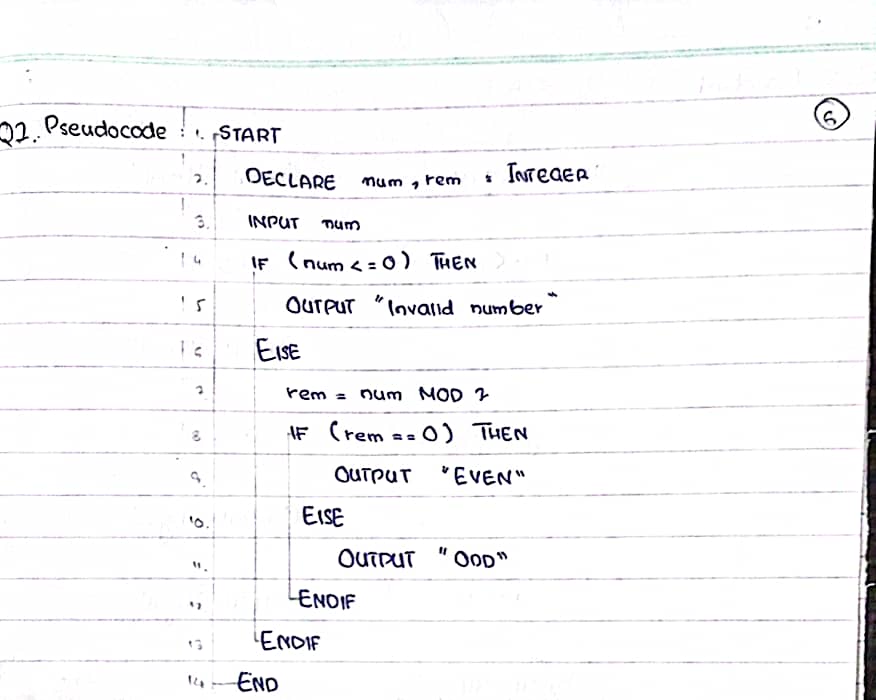 Q2. Pseudocode : 1. START
2. DECLARE num, rem : INTEGER
3. INPUT num
4 IF (num <= 0) THEN
5 OUTPUT "Invalid number"
6 ELSE
7 rem = num MOD 2
8 IF (rem == 0) THEN
9. OUTPUT "EVEN"
10. ELSE
11. OUTPUT "ODD"
12 ENDIF
13 ENDIF
14 END